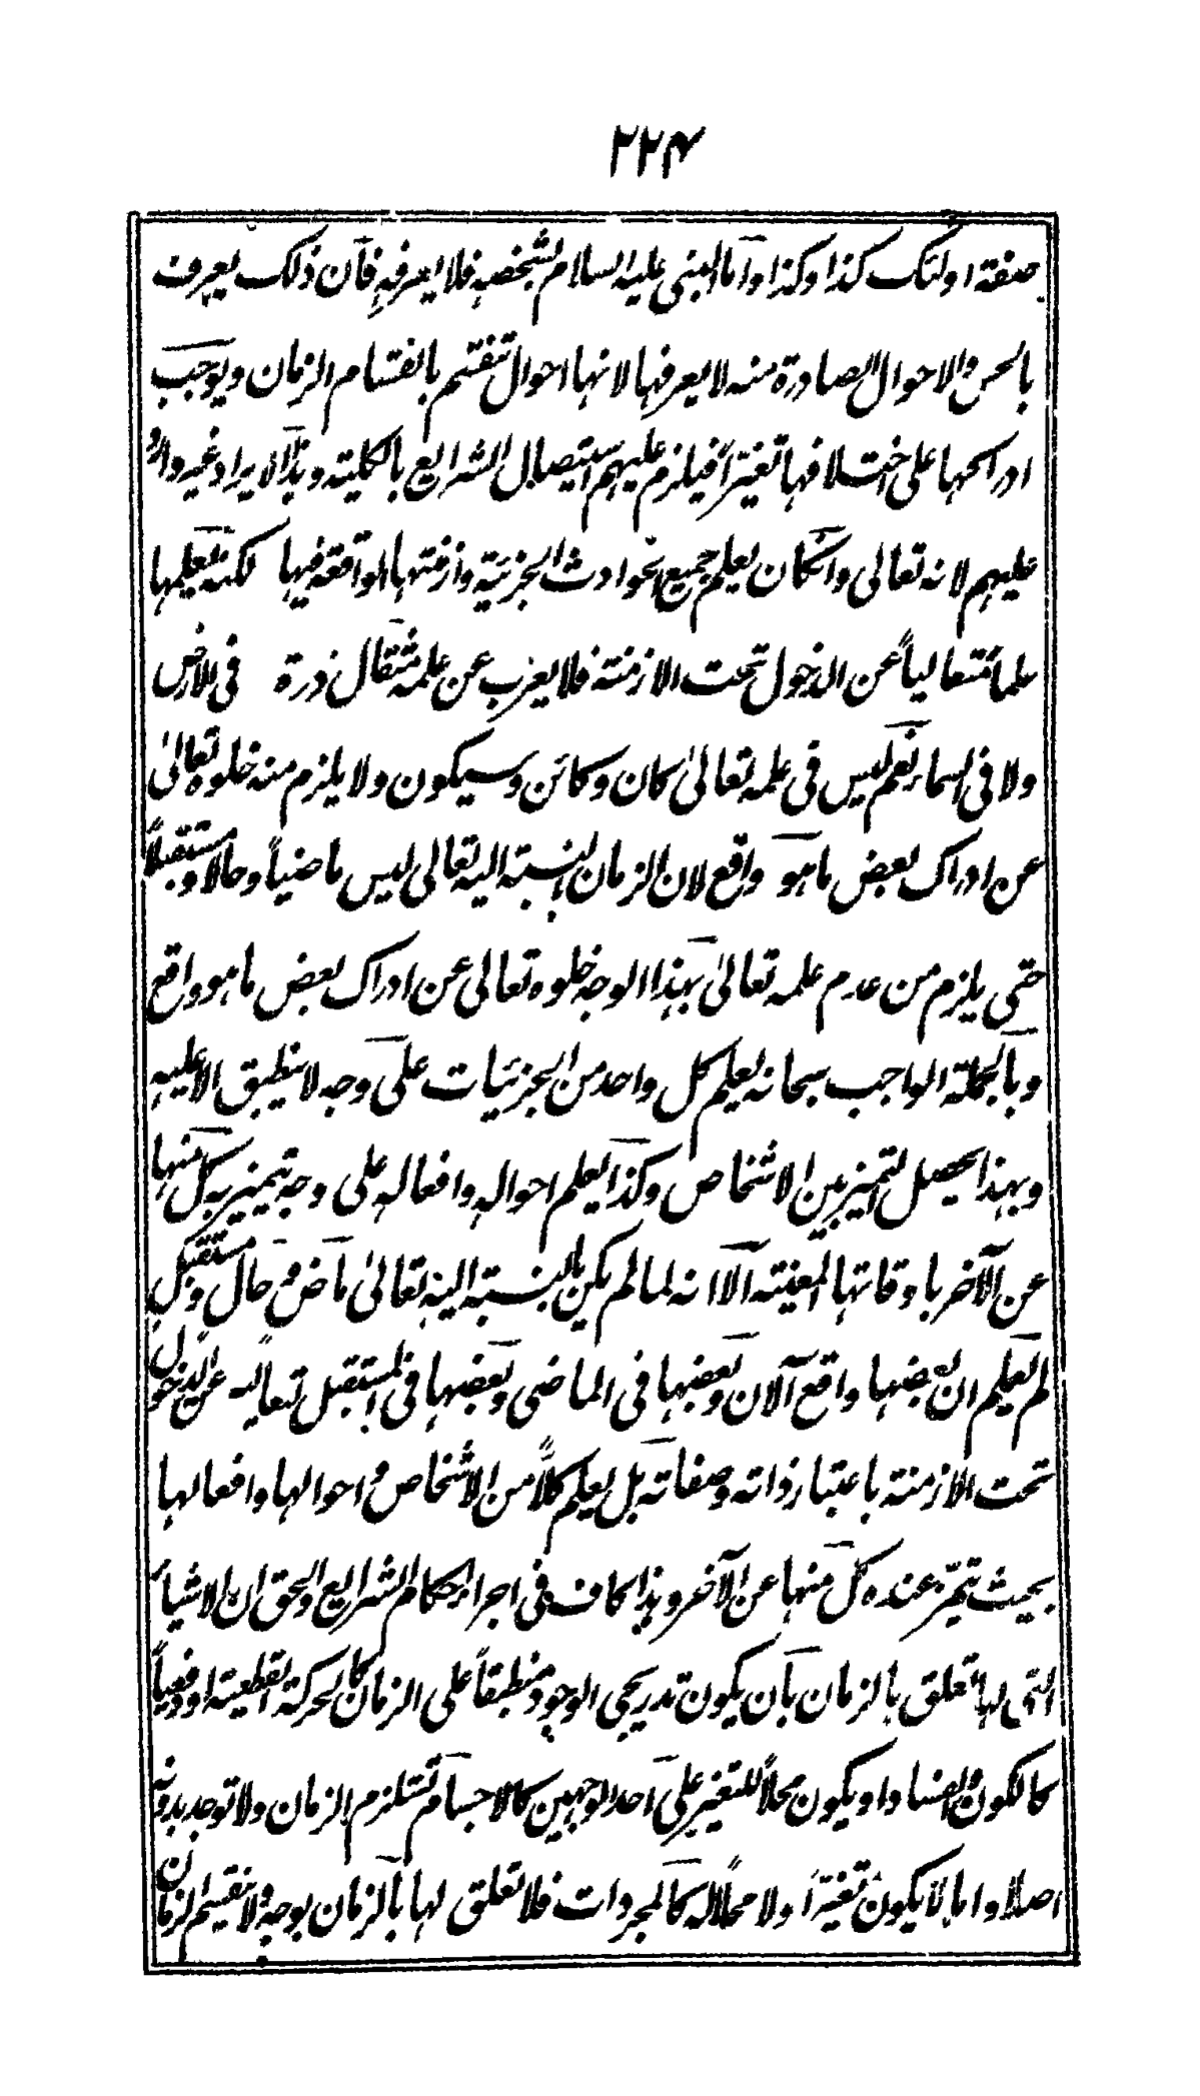 ۲۲۴
صفة اولئك كذا وكذا واما النبى عليه السلام بشخصه فلا يعرفه فان ذلك يعرف
بالحس والاحوال الصادرة منه لا يعرفها لانها احوال تنقسم بانقسام الزمان ويوجب
ادراكها على اختلافها تغيراً فيلزم عليهم استيصال الشرايع بالكلية وهذا الايراد غير وارد
عليهم لانه تعالى وانكان يعلم جميع الحوادث الجزئية وازمنتها الواقعة فيها لكنه يعلمها
علماً متعالياً عن الدخول تحت الازمنة فلا يعزب عن علمه مثقال ذرة فى الارض
ولا فى السماء نعم ليس فى علمه تعالىٰ كان وكائن وسيكون ولا يلزم منه خلوه تعالىٰ
عن ادراك بعض ما هو واقع لان الزمان بالنسبة اليه تعالى ليس ماضياً وحالا ومستقبلاً
حتى يلزم من عدم علمه تعالىٰ بهذا الوجه خلوه تعالى عن ادراك بعض ما هو واقع
وبالجملة الواجب سبحانه يعلم كل واحد من الجزئيات على وجه لا ينطبق الا عليه
وبهذا يحصل التميز بين الاشخاص وكذا يعلم احواله وافعاله على وجه يتميز به كل منها
عن الآخر باوقاتها المعينة الا انه لما لم يكن بالنسبة اليه تعالىٰ ماض وحال ومستقبل
لم يعلم ان بعضها واقع الآن وبعضها فى الماضى وبعضها فى المستقبل تعاليه عن الدخول
تحت الازمنة باعتبار ذاته وصفاته بل يعلم كلاً من الاشخاص واحوالها وافعالها
بحيث تميز عنده كل منها عن الآخر وهذا كاف فى اجراء احكام الشرايع والحق ان الاشياء
التى لها تعلق بالزمان بان يكون تدريجى الوجود منطبقاً على الزمان كالحركة القطعية او دفعياً
كالكون والفساد او يكون محلاً للتغير على احد الوجهين كالاجسام تستلزم الزمان ولا توجد بدونه
اصلا واما ما لا يكون تغيراً ولا محلاً له كالمجردات فلا تعلق لها بالزمان بوجه ولا تنقسم الزمان